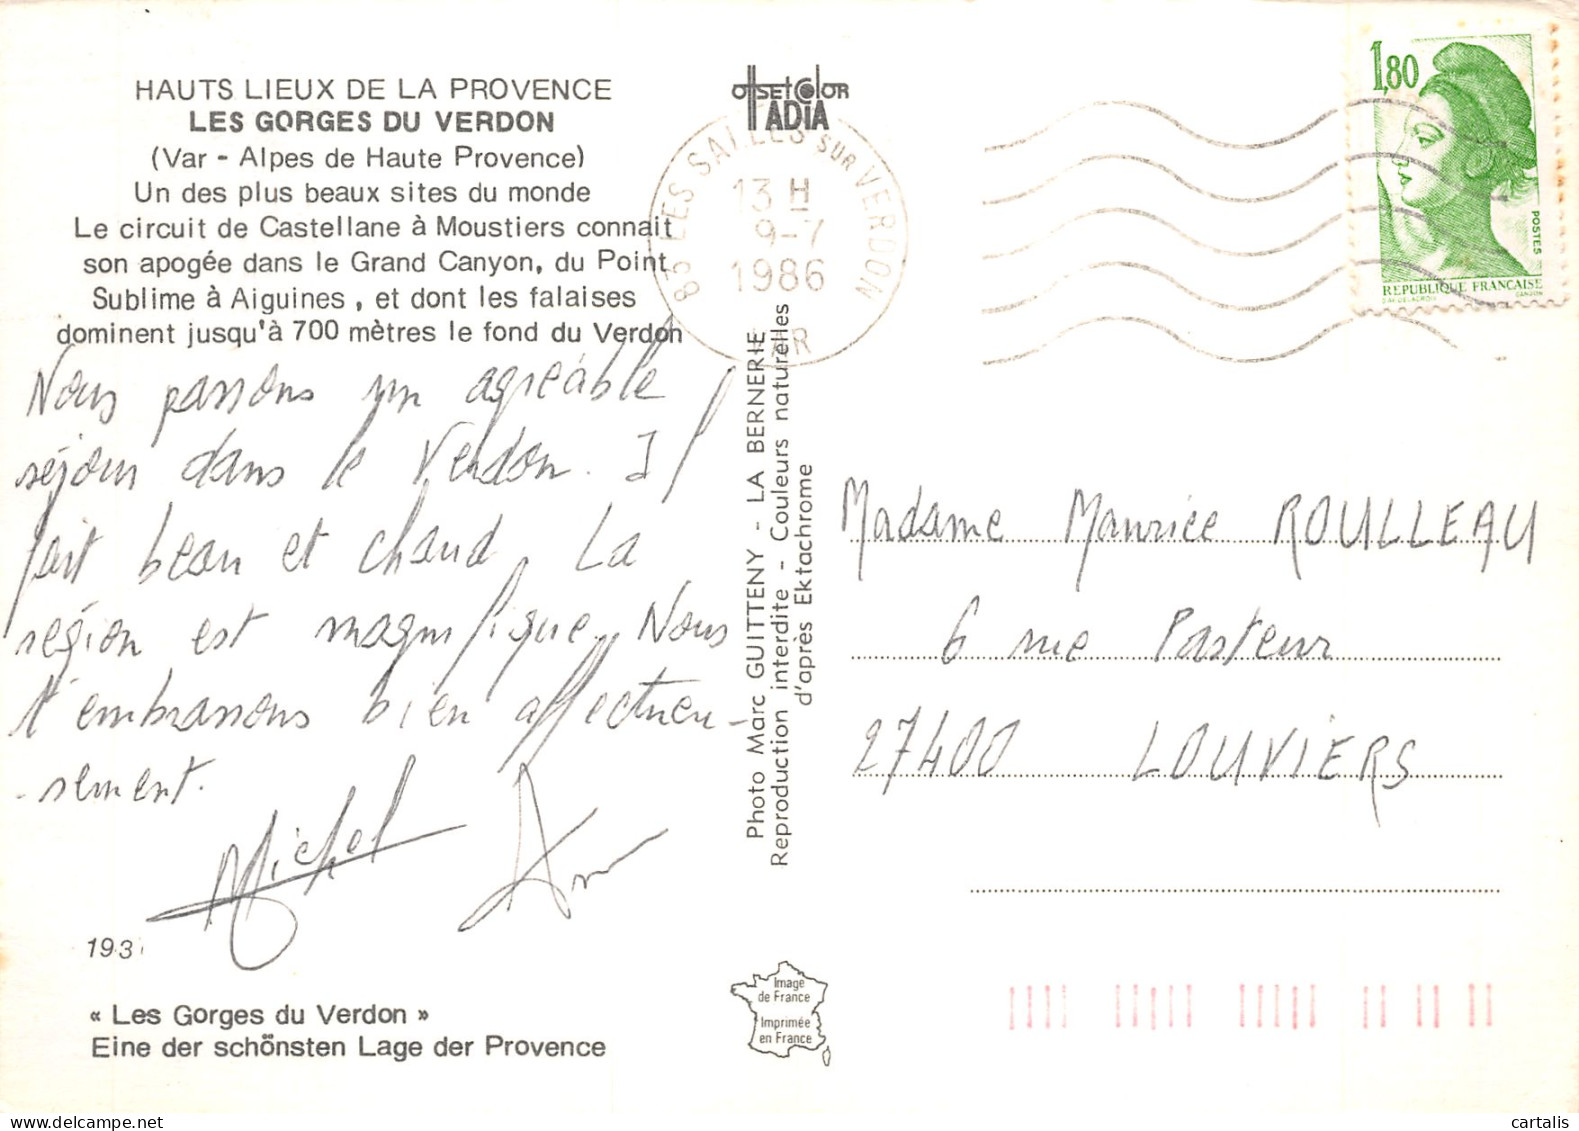 HAUTS LIEUX DE LA PROVENCE
LES GORGES DU VERDON
(Var - Alpes de Haute Provence)
Un des plus beaux sites du monde
Le circuit de Castellane à Moustiers connait
son apogée dans le Grand Canyon, du Point
Sublime à Aiguines, et dont les falaises
dominent jusqu'à 700 mètres le fond du Verdon
Nous passons un agréable
séjour dans le Verdon. Il
fait beau et chaud. La
région est magnifique. Nous
t'embrassons bien affectueu-
-sement.
Michel
193
« Les Gorges du Verdon »
Eine der schönsten Lage der Provence
offset color
ADIA
83 LES SALLES SUR VERDON
13 H
9-7
1986
VAR
Photo Marc GUITTENY - LA BERNERIE
Reproduction interdite - Couleurs naturelles
d'après Ektachrome
Image
de France
Imprimée
en France
1,80
POSTES
REPUBLIQUE FRANÇAISE
D'AP. DELACROIX GANDON
Madame Maurice ROUILLEAU
6 rue Pasteur
27400 LOUVIERS
cartalis
delcampe.net